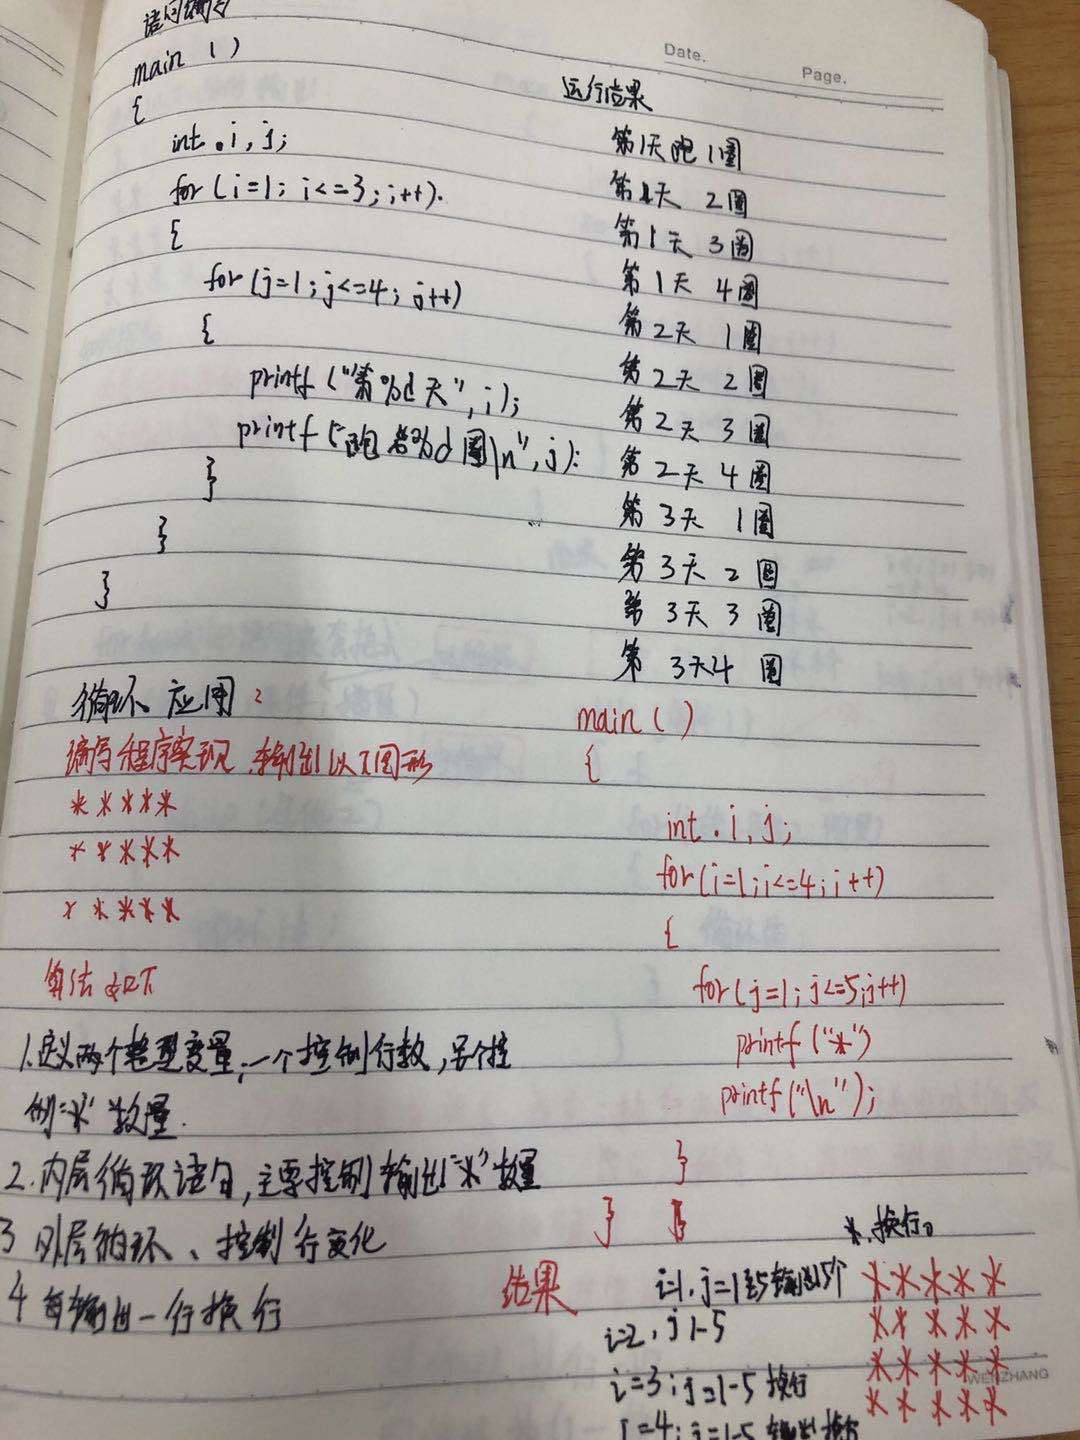 语句编写
main ()
{
int i, j;
for (i=1; i<=3; i++).
{
for (j=1; j<=4; j++)
{
printf ("第%d天", i);
printf ("跑第%d圈\n", j);
}
}
}
Date.
Page.
运行结果
第1天跑1圈
第1天 2圈
第1天 3圈
第1天 4圈
第2天 1圈
第2天 2圈
第2天 3圈
第2天 4圈
第3天 1圈
第3天 2圈
第3天 3圈
第3天4 圈
循环 应用:
编写程序实现,输出以下图形
* * * * *
* * * * *
* * * * *
算法如下
1.定义两个整型变量,一个控制行数,另个控
制"*"数量.
2.内层循环语句,主要控制输出"*"数量
3 外层循环、控制行变化
4 每输出一行换行
main ()
{
int i, j;
for (i=1; i<=4; i++)
{
for (j=1; j<=5; j++)
printf ("*")
printf ("\n");
}
}
*.换行。
结果
i=1, j=1至5输出5个
i=2, j 1-5
i=3; j=1-5 换行
i=4; j=1-5 输出换行
* * * * *
* * * * *
* * * * *
* * * * *
WENZHANG